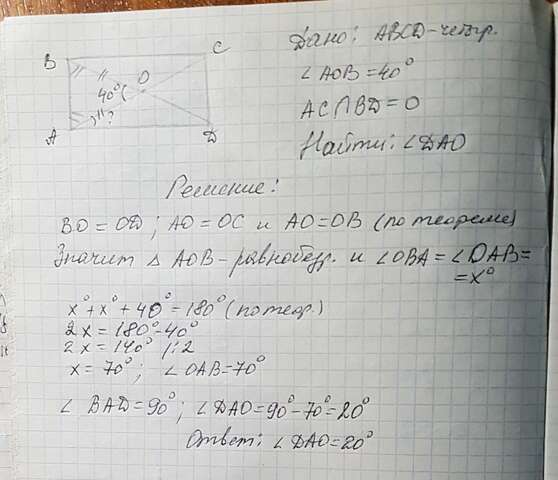 B
C
O
40°
?
A
D
Дано: ABCD-четыр.
∠AOB=40°
AC∩BD=O
Найти: ∠DAO
Решение:
BO=OD; AO=OC и AO=OB (по теореме)
Значит △ AOB-равнобедр. и ∠OBA=∠OAB=
=x°
x°+x°+40°=180° (по теор.)
2x=180°-40°
2x=140° |:2
x=70°; ∠OAB=70°
∠ BAD=90°; ∠DAO=90°-70°=20°
Ответ: ∠DAO=20°